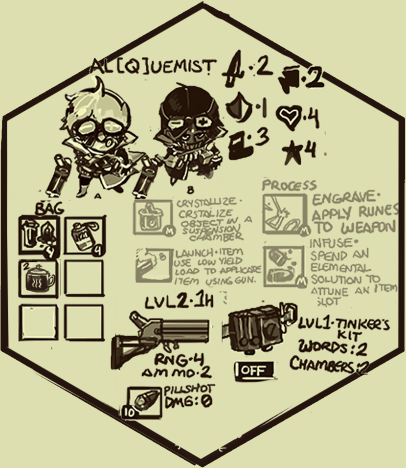 AL[Q]UEMIST
2
2
1
4
3
4
A
B
BAG
4
4
2
CRYSTALLIZE·
CRSTALIZE
OBJECT IN A
SUSPENSION
CHAMBER
M
LAUNCH·ITEM
USE LOW YIELD
LOAD TO APPLICATE
ITEM USING GUN.
M
PROCESS
ENGRAVE·
APPLY RUNES
TO WEAPON
M
INFUSE·
SPEND AN
ELEMENTAL
SOLUTION TO
ATTUNE AN ITEM
SLOT
M
LVL2·1H
RNG·4
AMMO·2
10
PILLSHOT
DMG:0
LVL1·TINKER'S
KIT
WORDS:2
CHAMBERS:2
OFF